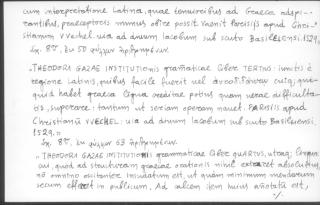 cum interpretatione Latina, quae tenuioribus ad Graeca adspi-
rantibus, praeceptoris munus obire possit. Vaenit Parisijs apud Chri-
stianum Vvechel: uia ad diuum Iacobum sub scuto Basileensi. 1529.
Σχ. 8ον. ἐκ 50 φύλλων
"THEODORI GAZAE INSTITUTIONIS grammaticae Liber TERTIUS: iunctis è
regione latinis, quibus facile fuerit uel cuiq; que-
quid habet graeca lingua creditae potius quam uerae difficulta-
tis, superare: tantum ut seriam operam nauet. PARISIIS apud
Christianum VVECHEL: uia ad diuum Iacobum sub scuto Basileensi,
1529.»
Σχ. 8ον. ἐκ φύλλων 63
"THEODORI GAZAE INSTITUTIONIS grammaticae Liber QUARTUS, utraq; lingua
cui, quod ad structuram graeciae orationis nihil absolutius,
nō omnino oscitanter insudatum est, ut quàm minimum mendarum
secum in publicum, Ad calcem item huius anotata est,
./.